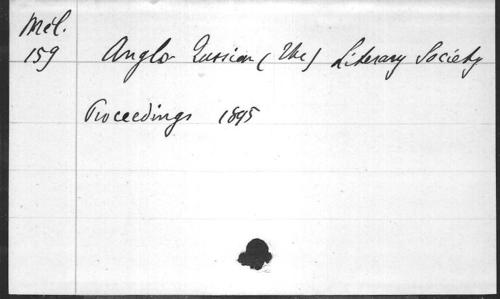 Mél.
159 Anglo Russian (The) Literary Society
Proceedings 1895